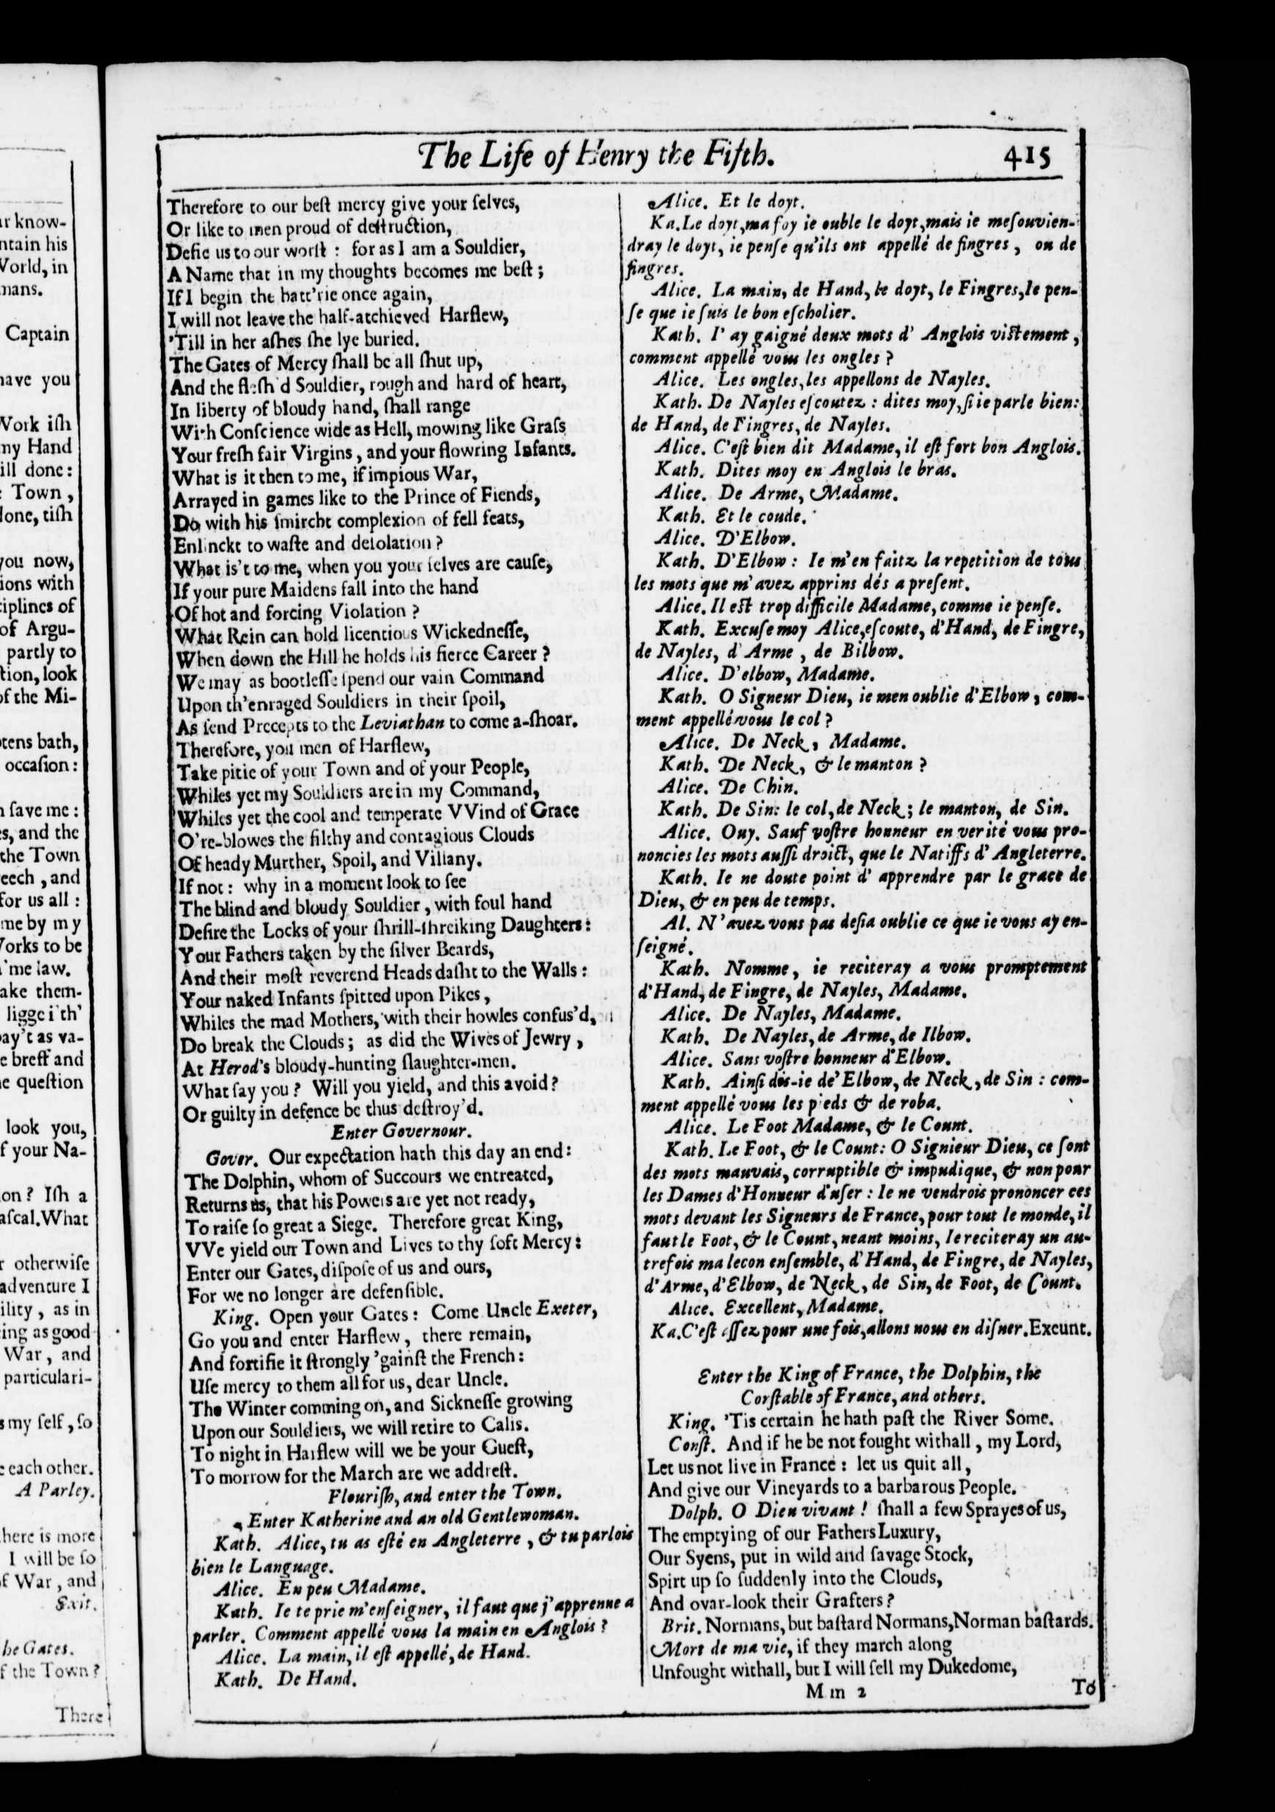 ur know-
ntain his
World, in
mans.
Captain
have you
Work iſh
my Hand
ill done:
Town,
done, tiſh
you now,
ions with
ciplines of
of Argu-
partly to
tion, look
of the Mi-
otens bath,
occaſion:
ſave me:
s, and the
the Town
eech, and
for us all:
me by my
Works to be
me law.
ake them-
ligge i'th'
pay't as va-
e breff and
e queſtion
look you,
f your Na-
on? Iſh a
aſcal. What
r otherwiſe
adventure I
ility, as in
ing as good
War, and
particulari-
s my ſelf, ſo
e each other.
A Parley.
here is more
I will be ſo
of War, and
Exit.
he Gates.
f the Town?
There
The Life of Henry the Fifth. 415
Therefore to our beſt mercy give your ſelves,
Or like to men proud of deſtruction,
Defie us to our worſt: for as I am a Souldier,
A Name that in my thoughts becomes me beſt;
If I begin the batt'rie once again,
I will not leave the half-atchieved Harflew,
'Till in her aſhes ſhe lye buried.
The Gates of Mercy ſhall be all ſhut up,
And the fleſh'd Souldier, rough and hard of heart,
In liberty of bloudy hand, ſhall range
With Conſcience wide as Hell, mowing like Graſs
Your freſh fair Virgins, and your flowring Infants.
What is it then to me, if impious War,
Arrayed in games like to the Prince of Fiends,
Do with his ſmircht complexion of fell feats,
Enlinckt to waſte and deſolation?
What is't to me, when you your ſelves are cauſe,
If your pure Maidens fall into the hand
Of hot and forcing Violation?
What Rein can hold licentious Wickedneſſe,
When down the Hill he holds his fierce Career?
We may as bootleſſe ſpend our vain Command
Upon th'enraged Souldiers in their ſpoil,
As ſend Precepts to the Leviathan to come a-ſhoar.
Therefore, you men of Harflew,
Take pitie of your Town and of your People,
Whiles yet my Souldiers are in my Command,
Whiles yet the cool and temperate VVind of Grace
O're-blowes the filthy and contagious Clouds
Of heady Murther, Spoil, and Villany.
If not: why in a moment look to ſee
The blind and bloudy Souldier, with foul hand
Deſire the Locks of your ſhrill-ſhreiking Daughters:
Your Fathers taken by the ſilver Beards,
And their moſt reverend Heads daſht to the Walls:
Your naked Infants ſpitted upon Pikes,
Whiles the mad Mothers, with their howles confus'd,
Do break the Clouds; as did the Wives of Jewry,
At Herod's bloudy-hunting ſlaughter-men.
What ſay you? Will you yield, and this avoid?
Or guilty in defence be thus deſtroy'd.
Enter Governour.
Gover. Our expectation hath this day an end:
The Dolphin, whom of Succours we entreated,
Returns us, that his Powers are yet not ready,
To raiſe ſo great a Siege. Therefore great King,
VVe yield our Town and Lives to thy ſoft Mercy:
Enter our Gates, diſpoſe of us and ours,
For we no longer are defenſible.
King. Open your Gates: Come Uncle Exeter,
Go you and enter Harflew, there remain,
And fortifie it ſtrongly 'gainſt the French:
Uſe mercy to them all for us, dear Uncle.
The Winter comming on, and Sickneſſe growing
Upon our Souldiers, we will retire to Calis.
To night in Harflew will we be your Gueſt,
To morrow for the March are we addreſt.
Flouriſh, and enter the Town.
Enter Katherine and an old Gentlewoman.
Kath. Alice, tu as eſté en Angleterre, & tu parlois
bien le Language.
Alice. En peu Madame.
Kath. Ie te prie m'enſeigner, il faut que j'apprenne a
parler. Comment appellé vous la main en Anglois?
Alice. La main, il eſt appellé, de Hand.
Kath. De Hand.
Alice. Et le doyt.
Ka. Le doyt, ma foy ie ouble le doyt, mais ie me ſouvien-
dray le doyt, ie penſe qu'ils ont appellé de fingres, ou de
fingres.
Alice. La main, de Hand, le doyt, le Fingres, le pen-
ſe que ie ſuis le bon eſcholier.
Kath. I' ay gaigné deux mots d' Anglois viſtement,
comment appellé vous les ongles?
Alice. Les ongles, les appellons de Nayles.
Kath. De Nayles eſcoutez: dites moy, ſi ie parle bien:
de Hand, de Fingres, de Nayles.
Alice. C'eſt bien dit Madame, il eſt fort bon Anglois.
Kath. Dites moy en Anglois le bras.
Alice. De Arme, Madame.
Kath. Et le coude.
Alice. D'Elbow.
Kath. D'Elbow: Ie m'en faitz la repetition de tous
les mots que m'avez apprins dés a preſent.
Alice. Il eſt trop difficile Madame, comme ie penſe.
Kath. Excuſe moy Alice, eſcoute, d'Hand, de Fingre,
de Nayles, d'Arme, de Bilbow.
Alice. D'elbow, Madame.
Kath. O Signeur Dieu, ie men oublie d'Elbow, com-
ment appellé vous le col?
Alice. De Neck, Madame.
Kath. De Neck, & le manton?
Alice. De Chin.
Kath. De Sin: le col, de Neck; le manton, de Sin.
Alice. Ouy. Sauf voſtre honneur en verité vous pro-
noncies les mots auſſi droict, que le Natiffs d'Angleterre.
Kath. Ie ne doute point d' apprendre par le grace de
Dieu, & en peu de temps.
Al. N'avez vous pas deſia oublie ce que ie vous ay en-
ſeigné.
Kath. Nomme, ie reciteray a vous promptement
d'Hand, de Fingre, de Nayles, Madame.
Alice. De Nayles, Madame.
Kath. De Nayles, de Arme, de Ilbow.
Alice. Sans voſtre honneur d'Elbow.
Kath. Ainſi dis-ie de'Elbow, de Neck, de Sin: com-
ment appellé vous les pieds & de roba.
Alice. Le Foot Madame, & le Count.
Kath. Le Foot, & le Count: O Signieur Dieu, ce ſont
des mots mauvais, corruptible & impudique, & non pour
les Dames d'Honueur d'uſer: le ne vendrois prononcer ces
mots devant les Signeurs de France, pour tout le monde, il
faut le Foot, & le Count, neant moins, le reciteray un au-
trefois ma lecon enſemble, d'Hand, de Fingre, de Nayles,
d'Arme, d'Elbow, de Neck, de Sin, de Foot, de Count.
Alice. Excellent, Madame.
Ka. C'eſt aſſez pour une fois, allons nous en diſner. Exeunt.
Enter the King of France, the Dolphin, the
Conſtable of France, and others.
King. 'Tis certain he hath paſt the River Some.
Conſt. And if he be not fought withall, my Lord,
Let us not live in France: let us quit all,
And give our Vineyards to a barbarous People.
Dolph. O Dieu vivant! ſhall a few Sprayes of us,
The emptying of our Fathers Luxury,
Our Syens, put in wild and ſavage Stock,
Spirt up ſo ſuddenly into the Clouds,
And ovar-look their Grafters?
Brit. Normans, but baſtard Normans, Norman baſtards.
Mort de ma vie, if they march along
Unfought withall, but I will ſell my Dukedome,
M m 2 To